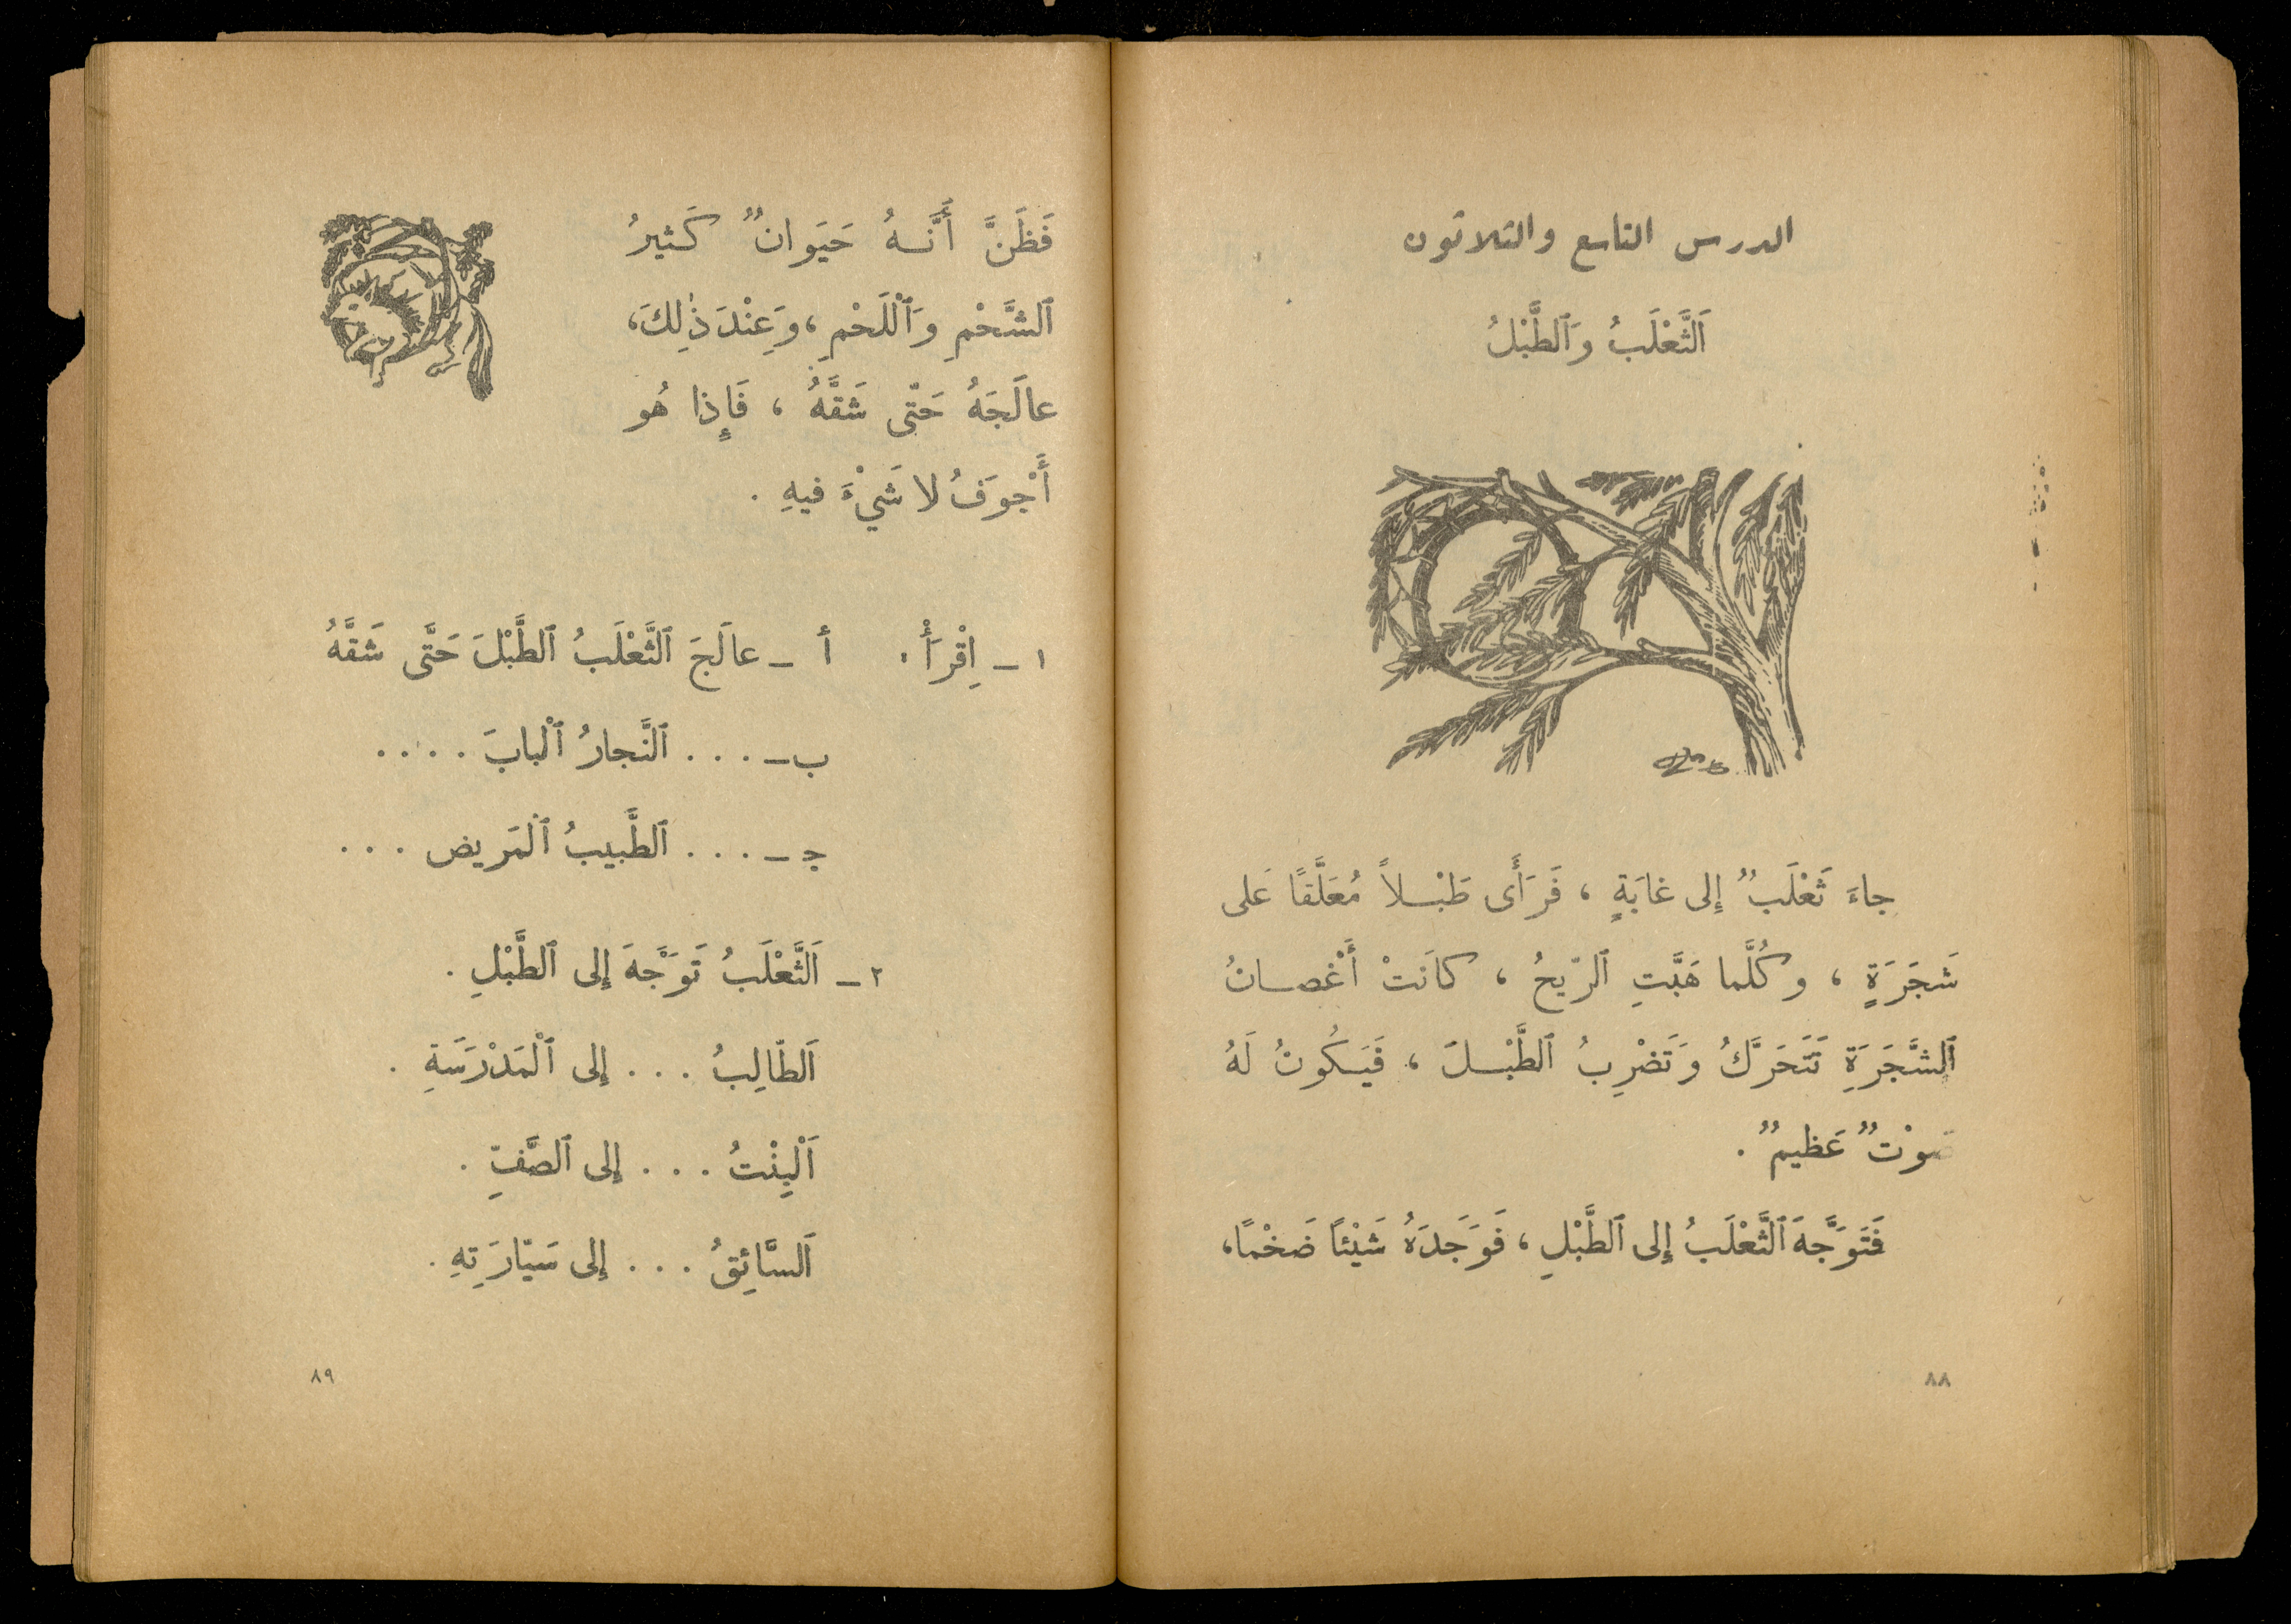 الدرس التاسع والثلاثون
اَلثَّعْلَبُ وَٱلطَّبْلُ
جاءَ ثَعْلَبٌ إِلى غابَةٍ ، فَرَأَى طَبْلاً مُعَلَّقًا عَلى
شَجَرَةٍ ، وكُلَّما هَبَّتِ ٱلرّيحُ ، كانَتْ أَغْصانُ
ٱلشَّجَرَةِ تَتَحَرَّكُ وَتَضْرِبُ ٱلطَّبْلَ ، فَيَكُونُ لَهُ
صَوْتٌ عَظيمٌ .
فَتَوَجَّهَ ٱلثَّعْلَبُ إِلى ٱلطَّبْلِ ، فَوَجَدَهُ شَيْئًا ضَخْمًا ،
٨٨
فَظَنَّ أَنَّهُ حَيَوانٌ كَثيرُ
ٱلشَّحْمِ وَٱلْلَحْمِ ، وَعِنْدَ ذٰلِكَ ،
عالَجَهُ حَتّى شَقَّهُ ، فَإِذا هُو
أَجْوَفُ لا شَيْءَ فيهِ .
١ – اِقْرَأْ . أ – عالَجَ ٱلثَّعْلَبُ ٱلطَّبْلَ حَتَّى شَقَّهُ
ب – . . . ٱلنَّجارُ ٱلْبابَ . . . .
جـ – . . . ٱلطَّبيبُ ٱلْمَريض . . .
٢ – اَلثَّعْلَبُ تَوَجَّهَ إِلى ٱلطَّبْلِ .
اَلطّالِبُ . . . إِلى ٱلْمَدْرَسَةِ .
اَلْبِنْتُ . . . إِلى ٱلصَّفِّ .
اَلسَّائِقُ . . . إِلى سَيّارَتِهِ .
٨٩